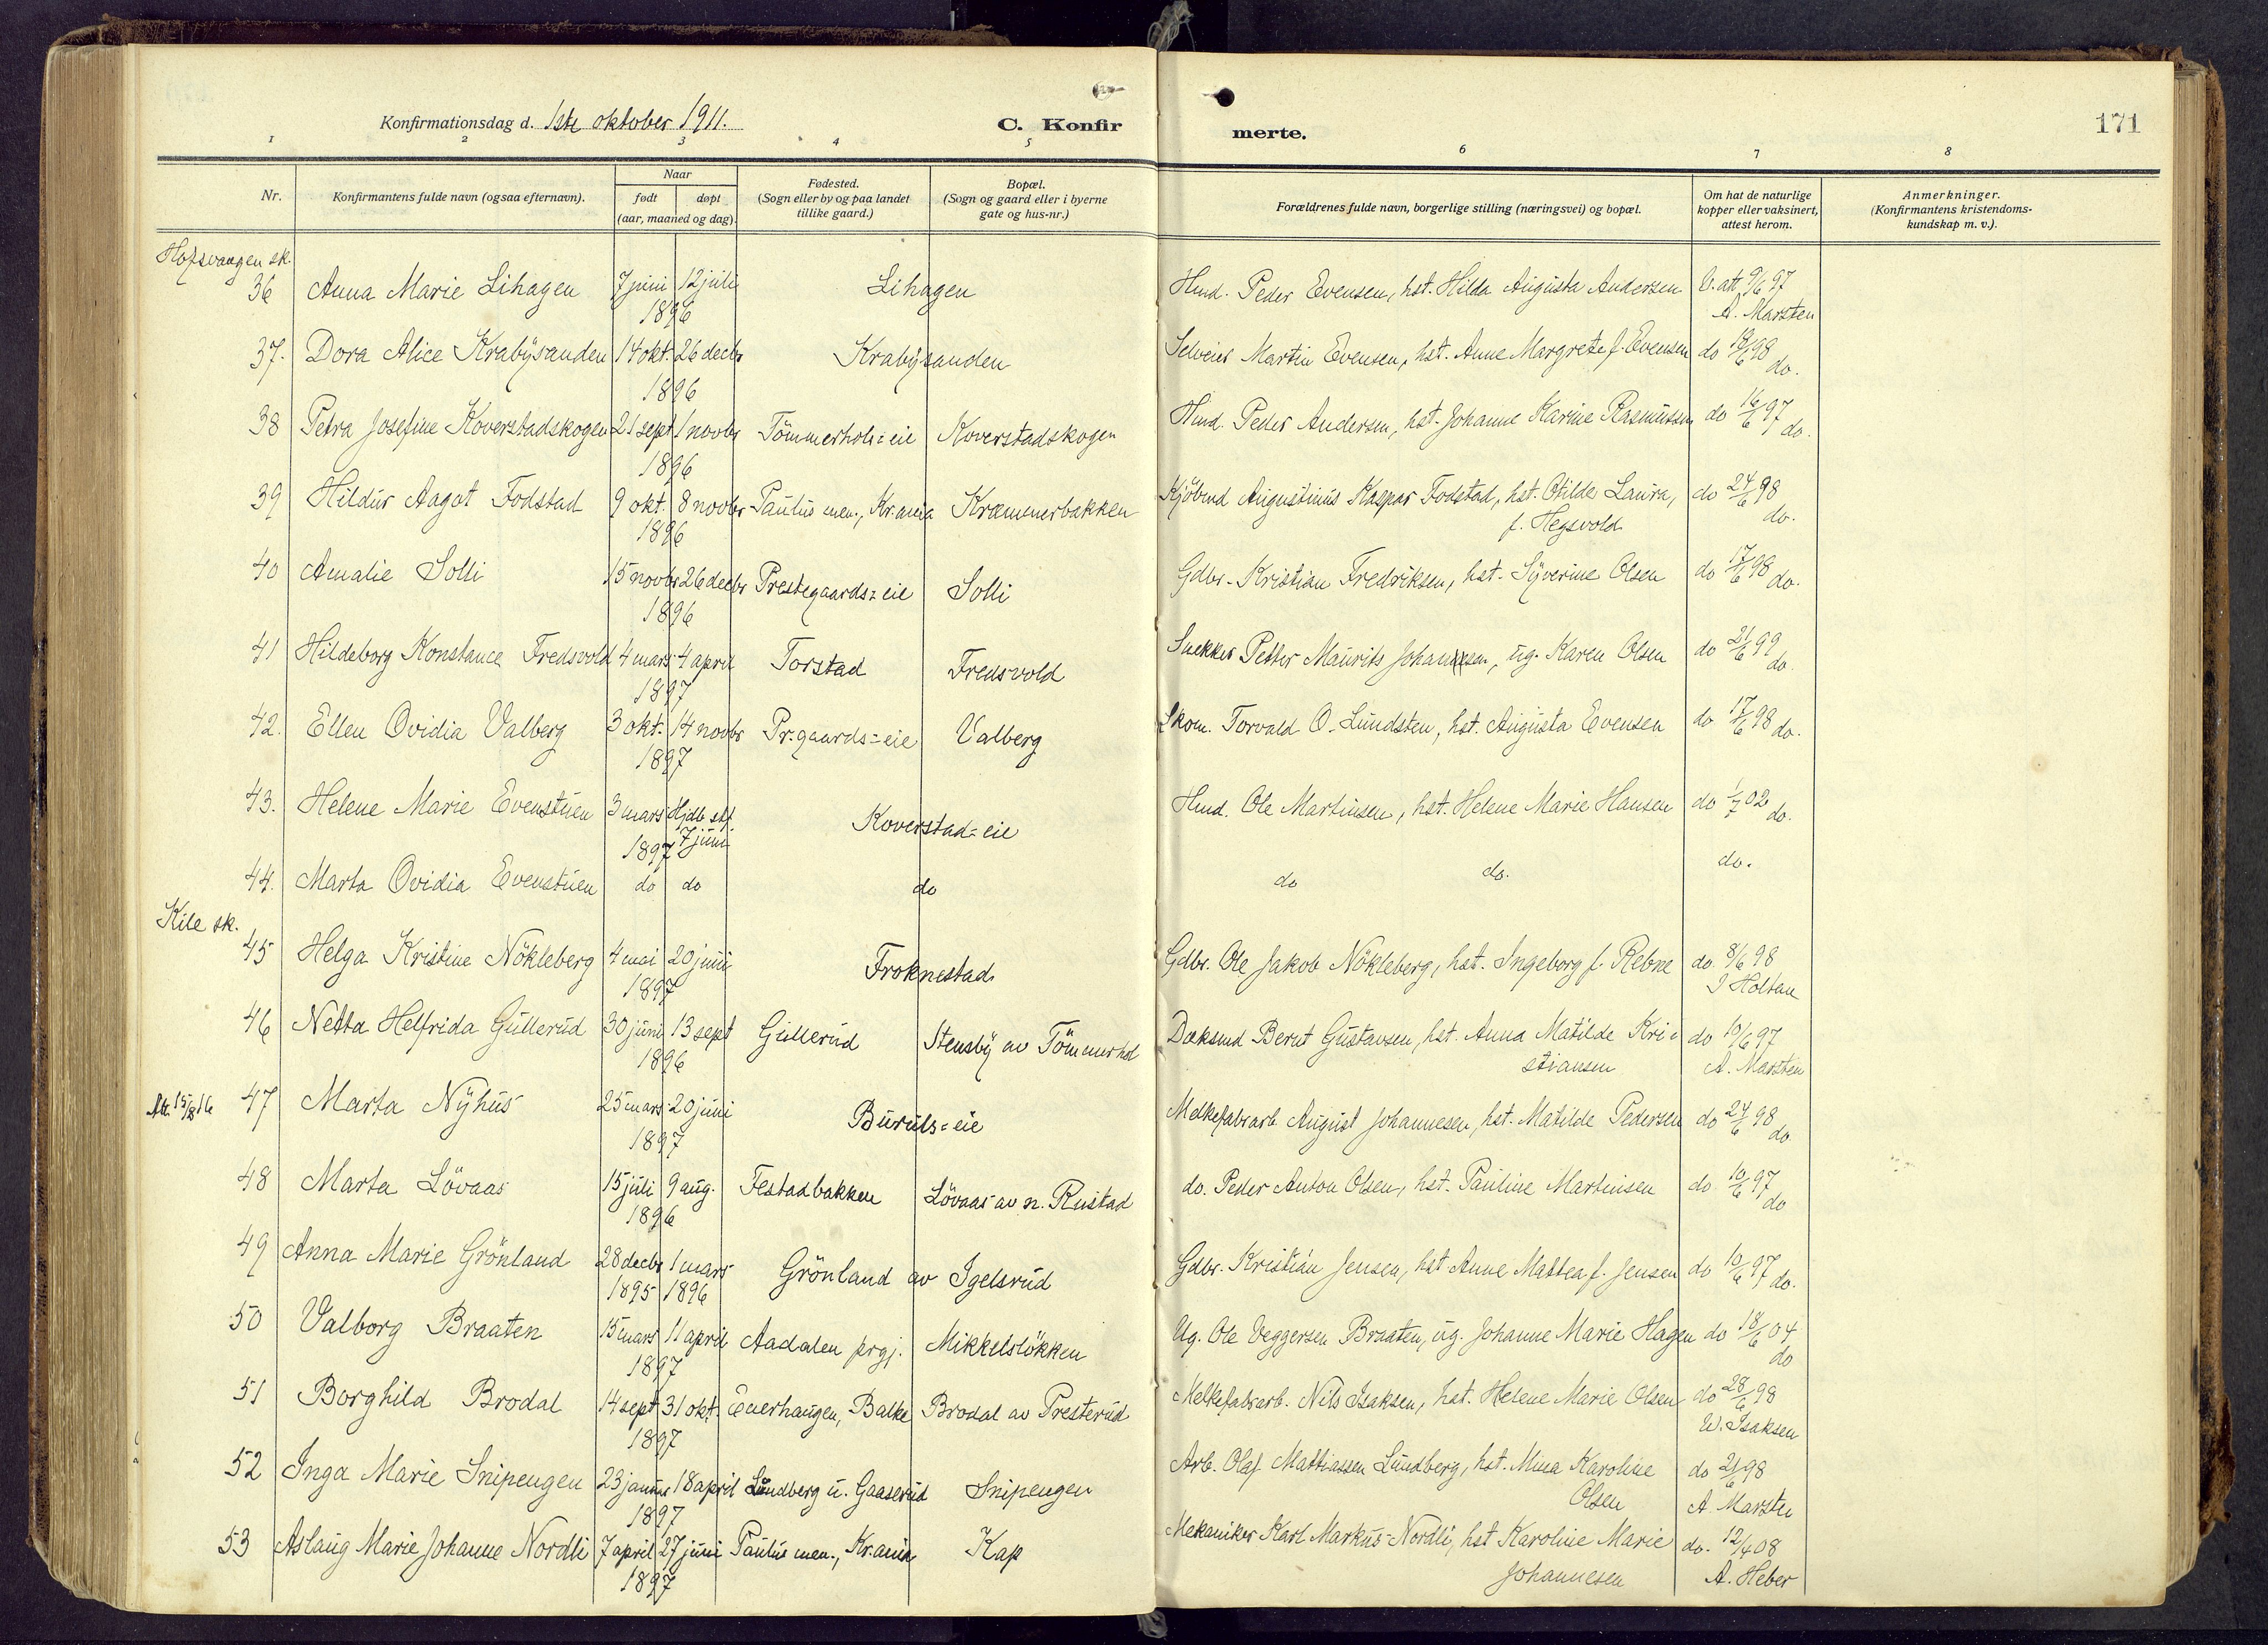 Konfirmationsdag d. 1ste oktober 1911.
C. Konfirmerte.
171
1 2 3 4 5 6 7 8
Nr. Konfirmantens fulde navn (ogsaa efternavn). Naar født døpt (aar, maaned og dag). Fødested. (Sogn eller by og paa landet tillike gaard.) Bopæl. (Sogn og gaard eller i byerne gate og hus-nr.) Forældrenes fulde navn, borgerlige stilling (næringsvei) og bopæl. Om hat de naturlige kopper eller vaksinert, attest herom. Anmerkninger. (Konfirmantens kristendoms-kundskap m. v.).
Hofsvangen sk.
36 Anna Marie Lihagen 7 juni 12 juli Lihagen Hmd. Peder Evensen, hst. Hilda Augusta Andersen V. att 9/6 97
1896 A. Marsten
37. Dora Alice Krabÿsanden 14 okt. 26 decbr Krabÿsanden Selveier Martin Evensen, hst. Anne Margrete f. Evensen do 18/6 98 do.
1896
38 Petra Josefine Koverstadskogen 21 sept 1 novbr Tömmerhols=eie Koverstadskogen Hmd. Peder Andersen, hst. Johanne Karine Rasmussen do 16/6 97 do.
1896
39 Hildur Aagot Fodstad 9 okt. 8 novbr Paulus men., Kr.ania Kræmmerbakken Kjöbmd Augustinus Kaspar Fodstad, hst. Otilde Laura, do 24/6 98 do.
1896 f. Hegsvold
40 Amalie Solli 15 novbr 26 decbr Prestegaards=eie Solli Gdbr. Kristian Fredriksen, hst. Sÿverine Olsen do 17/6 98 do.
1896
41 Hildeborg Konstance Fredsvold 4 mars 4 april Torstad Fredsvold Snekker Petter Maurits Johansen, ug. Karen Olsen do 21/6 99 do.
1897
42. Ellen Ovidia Valberg 3 okt. 14 novbr Pr.gaards=eie Valberg Skom. Torvald O. Lundsten, hst. Augusta Evensen do 17/6 98 do.
1897
43. Helene Marie Evenstuen 3 mars Hjdb stf. 7 juni Koverstad=eie Hmd. Ole Martinsen, hst. Helene Marie Hansen do 1/7 02 do.
1897
44. Marta Ovidia Evenstuen do do do do do. do.
Kile sk.
45 Helga Kristine Nökleberg 4 mai 20 juni Froknestad. Gdbr. Ole Jakob Nökleberg, hst. Ingeborg f. Rebne do. 8/6 98
1897 I Holtan
46 Netta Helfrida Gullerud 30 juni 13 sept Gullerud Stensbÿ av Tömmerhol Doksmd Bernt Gustavsen, hst. Anna Matilde Kri= do 10/6 97
1896 stiansen A. Marsten
Att. 15/8 16 47 Marta Nÿhus 25 mars 20 juni Buruls=eie Melkefabrarb. August Johannesen, hst. Matilde Pedersen do 24/6 98 do.
1897
48 Marta Lövaas 15 juli 9 aug. Festadbakken Lövaas av n. Rustad do. Peder Anton Olsen, hst. Pauline Martinsen do. 10/6 97 do
1896
49 Anna Marie Grönland 28 decbr 1 mars Grönland av Igelsrud Gdbr. Kristian Jensen, hst Anne Mattea f. Jensen do 10/6 97 do.
1895 1896
50 Valborg Braaten 15 mars 11 april Aadalen prgj. Mikkelslökken Ug. Ole Veggersen Braaten, ug. Johanne Marie Hagen do 18/6 04 do
1897
51 Borghild Brodal 14 sept 31 okt. Enerhaugen, Balke Brodal av Presterud Melkefabrarb. Nils Isaksen, hst. Helene Marie Olsen do 28/6 98
1897 W. Isaksen
52 Inga Marie Snipengen 23 januar 18 april Lundberg u. Gaaserud Snipengen Arb. Olaf Mathiassen Lundberg, hst. Mina Karoline do 21/6 98
1897 Olsen A. Marsten
53 Aslaug Marie Johanne Nordli 7 april 27 juni Paulus men., Kr.ania Kap Mekaniker Karl Markus Nordli, hst Karoline Marie do. 12/4 08
1897 Johannesen A. Heber